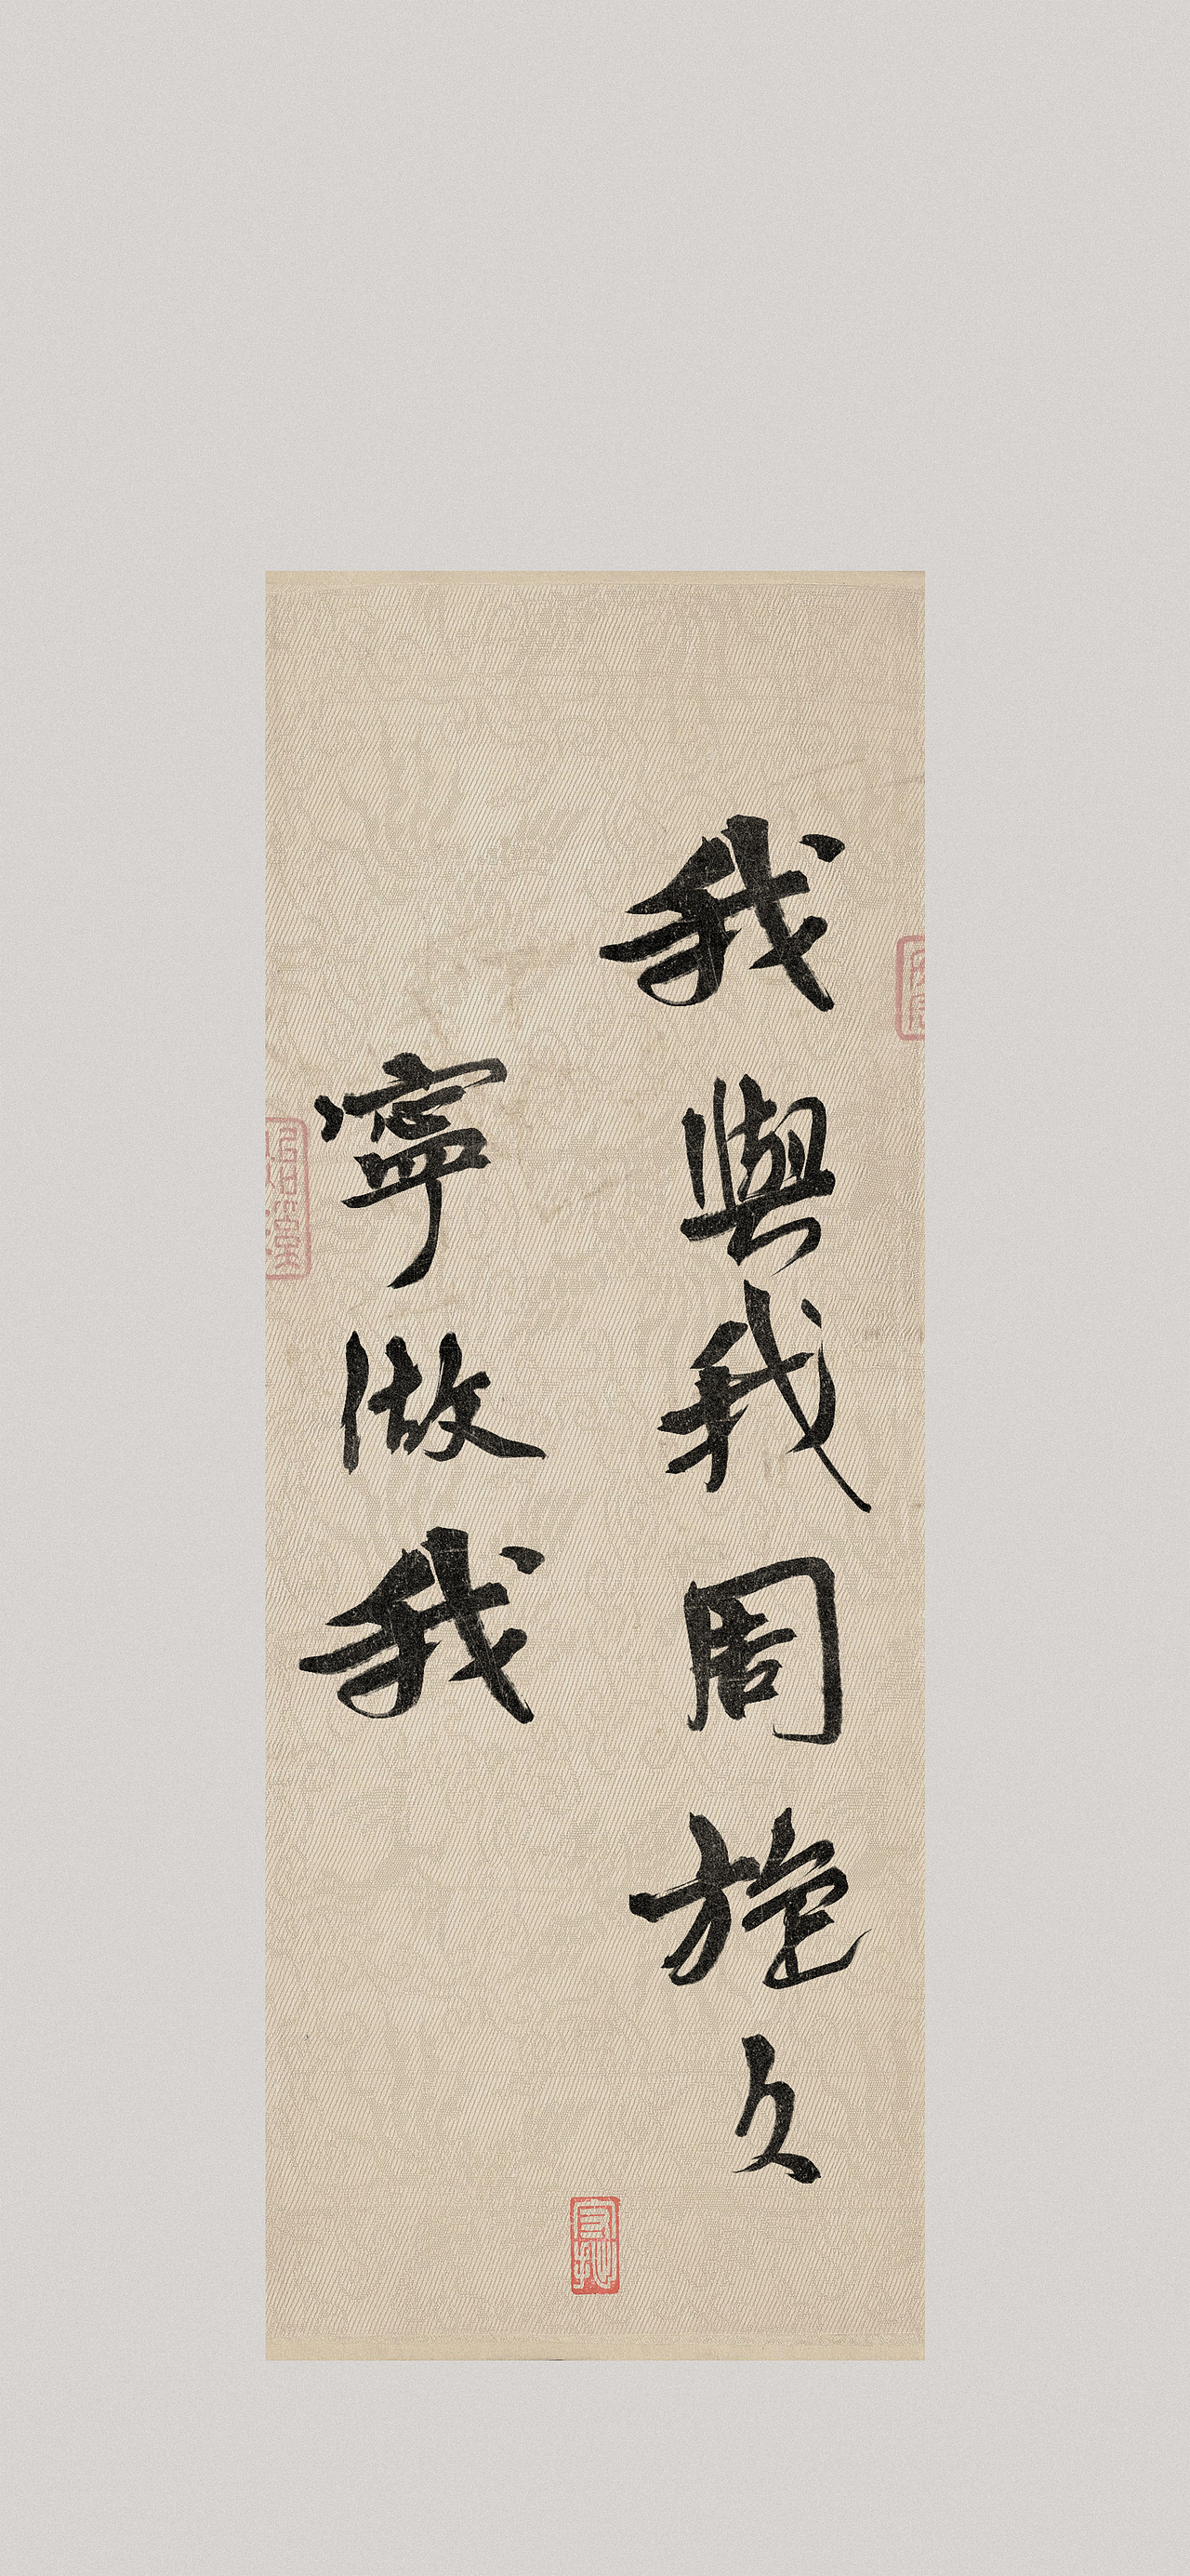 我與我周旋久
寧做我